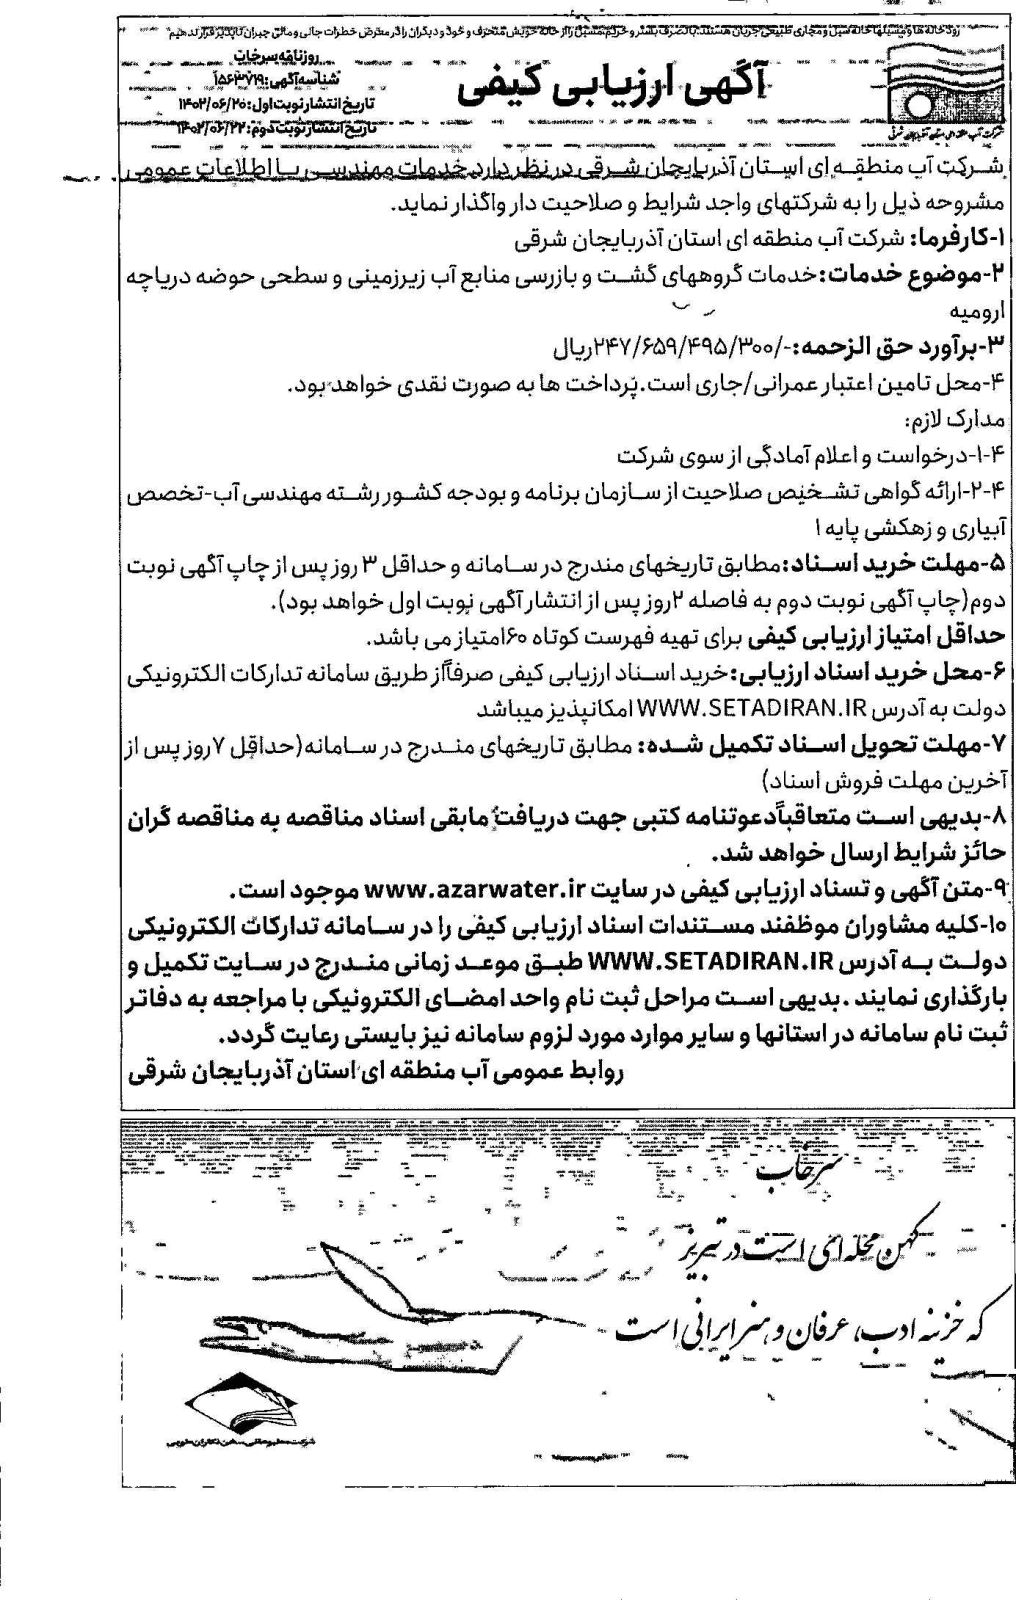 رودخانه ها و مسیلها خانه سیل و مجاری طبیعی جریان هستند، با تصرف بستر و حریم مسیل را از خانه خویش منحرف و خود و دیگران را در معرض خطرات جانی و مالی جبران ناپذیر قرار ندهیم
روزنامه سرخاب
شناسه آگهی: ۱۵۶۳۷۱۹
تاریخ انتشار نوبت اول: ۱۴۰۲/۰۶/۲۰
تاریخ انتشار نوبت دوم: ۱۴۰۲/۰۶/۲۲
آگهی ارزیابی کیفی
شرکت آب منطقه ای استان آذربایجان شرقی در نظر دارد خدمات مهندسی با اطلاعات عمومی
مشروحه ذیل را به شرکتهای واجد شرایط و صلاحیت دار واگذار نماید.
۱-کارفرما: شرکت آب منطقه ای استان آذربایجان شرقی
۲-موضوع خدمات: خدمات گروههای گشت و بازرسی منابع آب زیرزمینی و سطحی حوضه دریاچه
ارومیه
۳-برآورد حق الزحمه: -/۲۴۷/۶۵۹/۴۹۵/۳۰۰ریال
۴-محل تامین اعتبار عمرانی/جاری است.پرداخت ها به صورت نقدی خواهد بود.
مدارک لازم:
۱-۴-درخواست و اعلام آمادگی از سوی شرکت
۲-۴-ارائه گواهی تشخیص صلاحیت از سازمان برنامه و بودجه کشور رشته مهندسی آب-تخصص
آبیاری و زهکشی پایه ۱
۵-مهلت خرید اسناد:مطابق تاریخهای مندرج در سامانه و حداقل ۳ روز پس از چاپ آگهی نوبت
دوم(چاپ آگهی نوبت دوم به فاصله ۲روز پس از انتشار آگهی نوبت اول خواهد بود).
حداقل امتیاز ارزیابی کیفی برای تهیه فهرست کوتاه ۶۰امتیاز می باشد.
۶-محل خرید اسناد ارزیابی:خرید اسناد ارزیابی کیفی صرفاًاز طریق سامانه تدارکات الکترونیکی
دولت به آدرس WWW.SETADIRAN.IR امکانپذیر میباشد
۷-مهلت تحویل اسناد تکمیل شده: مطابق تاریخهای مندرج در سامانه(حداقل ۷روز پس از
آخرین مهلت فروش اسناد)
۸-بدیهی است متعاقباًدعوتنامه کتبی جهت دریافت مابقی اسناد مناقصه به مناقصه گران
حائز شرایط ارسال خواهد شد.
۹-متن آگهی و تسناد ارزیابی کیفی در سایت www.azarwater.ir موجود است.
۱۰-کلیه مشاوران موظفند مستندات اسناد ارزیابی کیفی را در سامانه تدارکات الکترونیکی
دولت به آدرس WWW.SETADIRAN.IR طبق موعد زمانی مندرج در سایت تکمیل و
بارگذاری نمایند .بدیهی است مراحل ثبت نام واحد امضای الکترونیکی با مراجعه به دفاتر
ثبت نام سامانه در استانها و سایر موارد مورد لزوم سامانه نیز بایستی رعایت گردد.
روابط عمومی آب منطقه ای استان آذربایجان شرقی
سرخاب
کهن محله ای است در تبریز
که خزینه ادب، عرفان و هنر ایرانی است